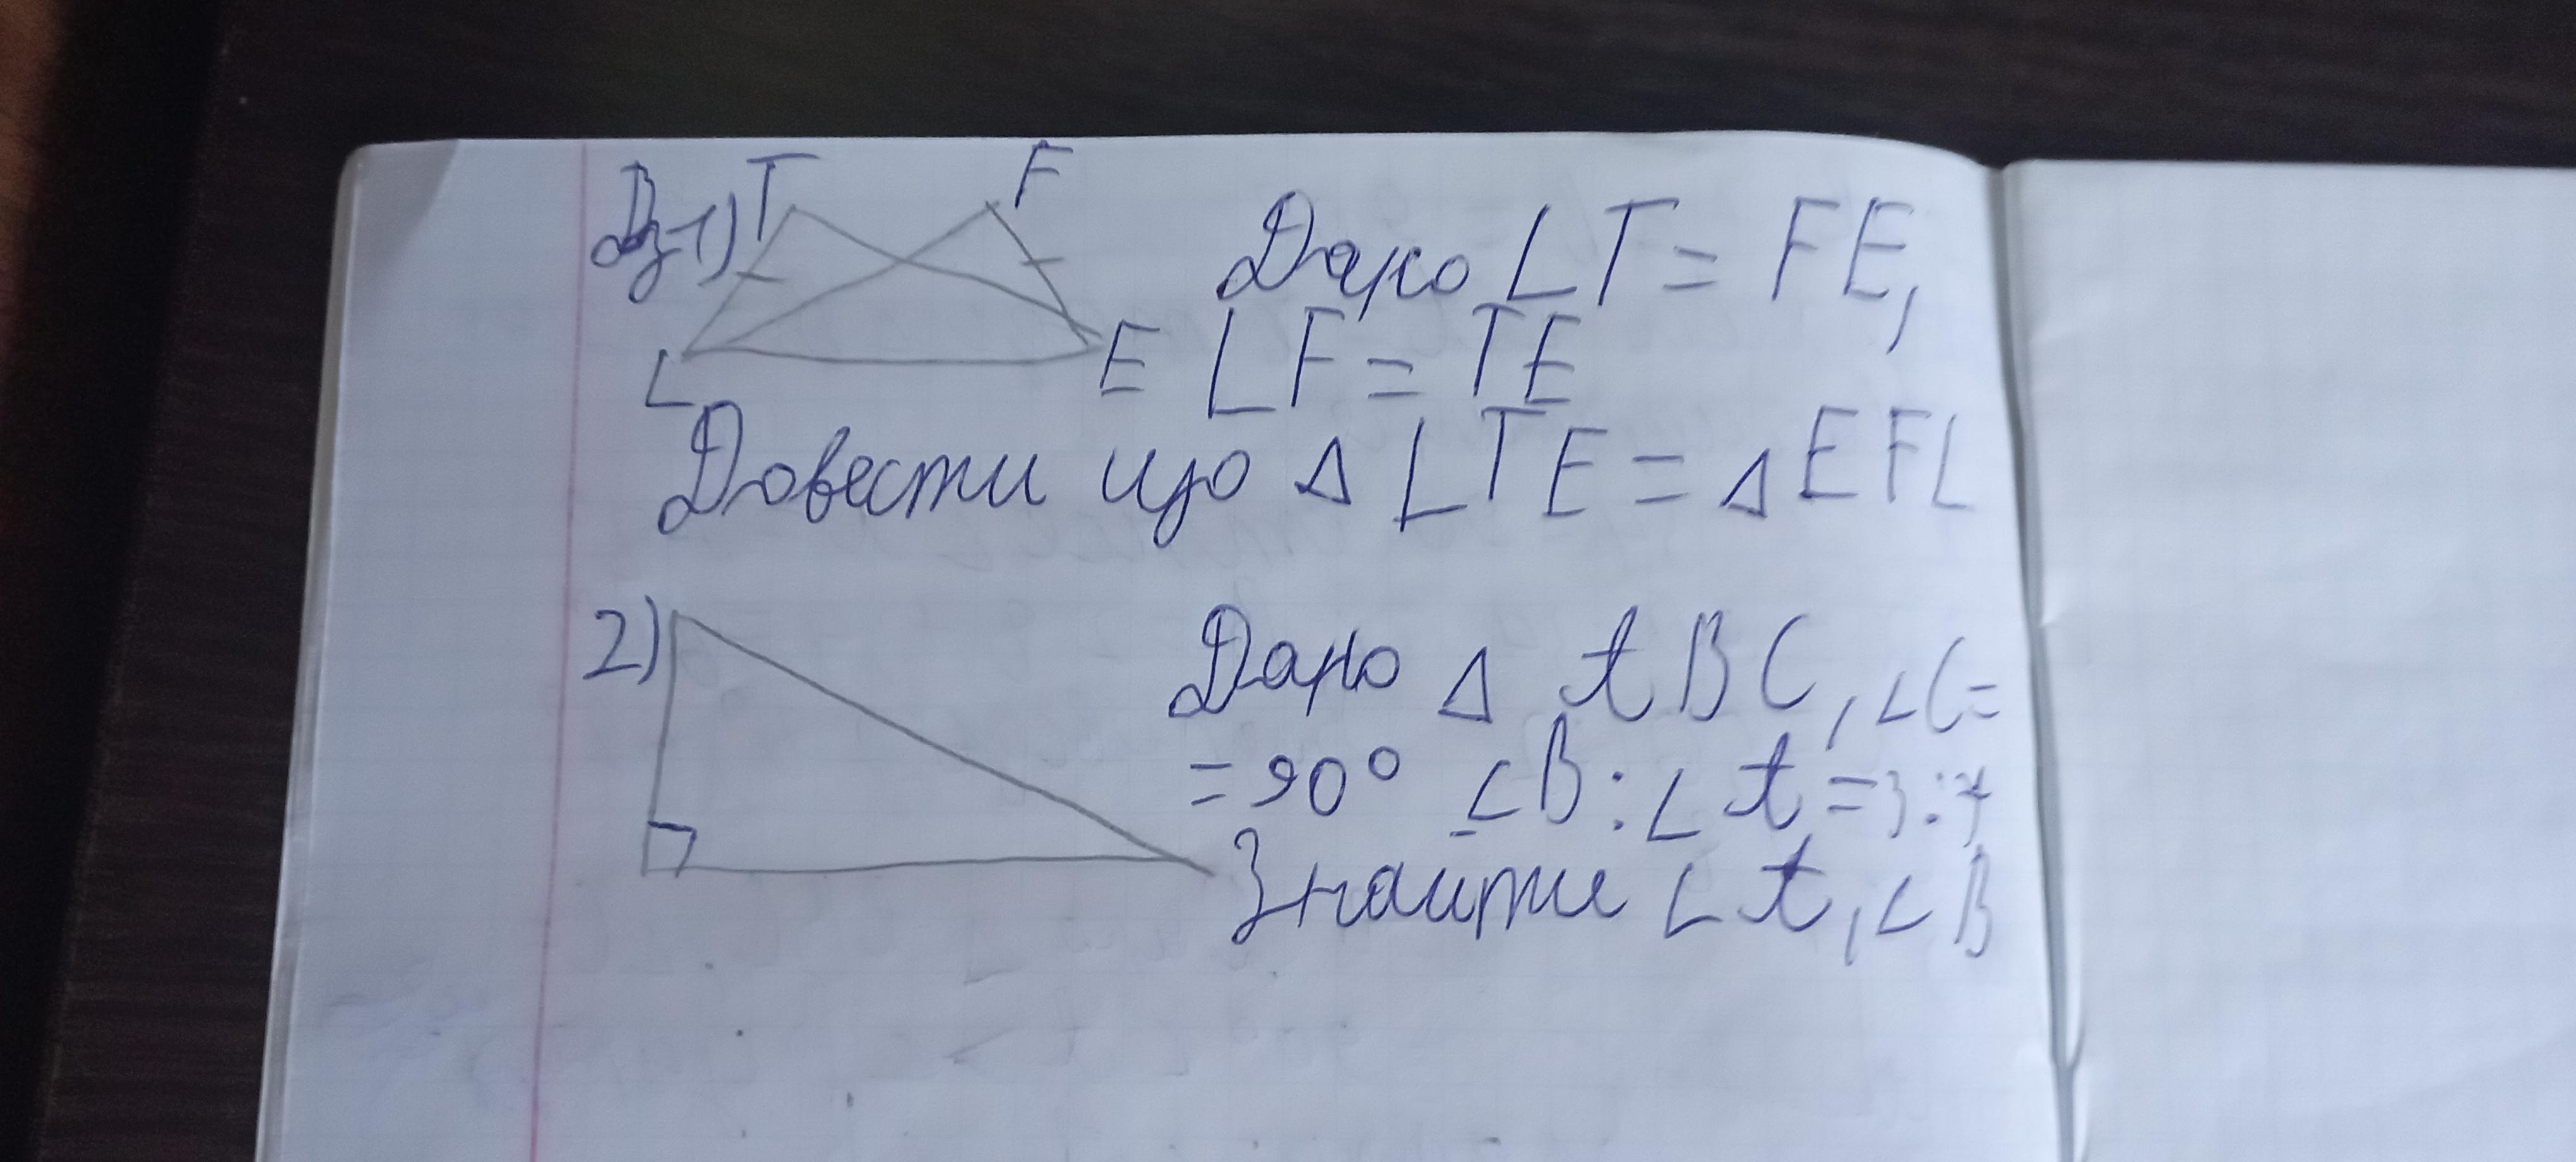 Дз 1) T F
L E
Дано LT = FE,
LF = TE
Довести що Δ LTE = Δ EFL
2)
Дано Δ ABC, ∠C=
= 90° ∠B : ∠A = 3:7
Знайти ∠A, ∠B